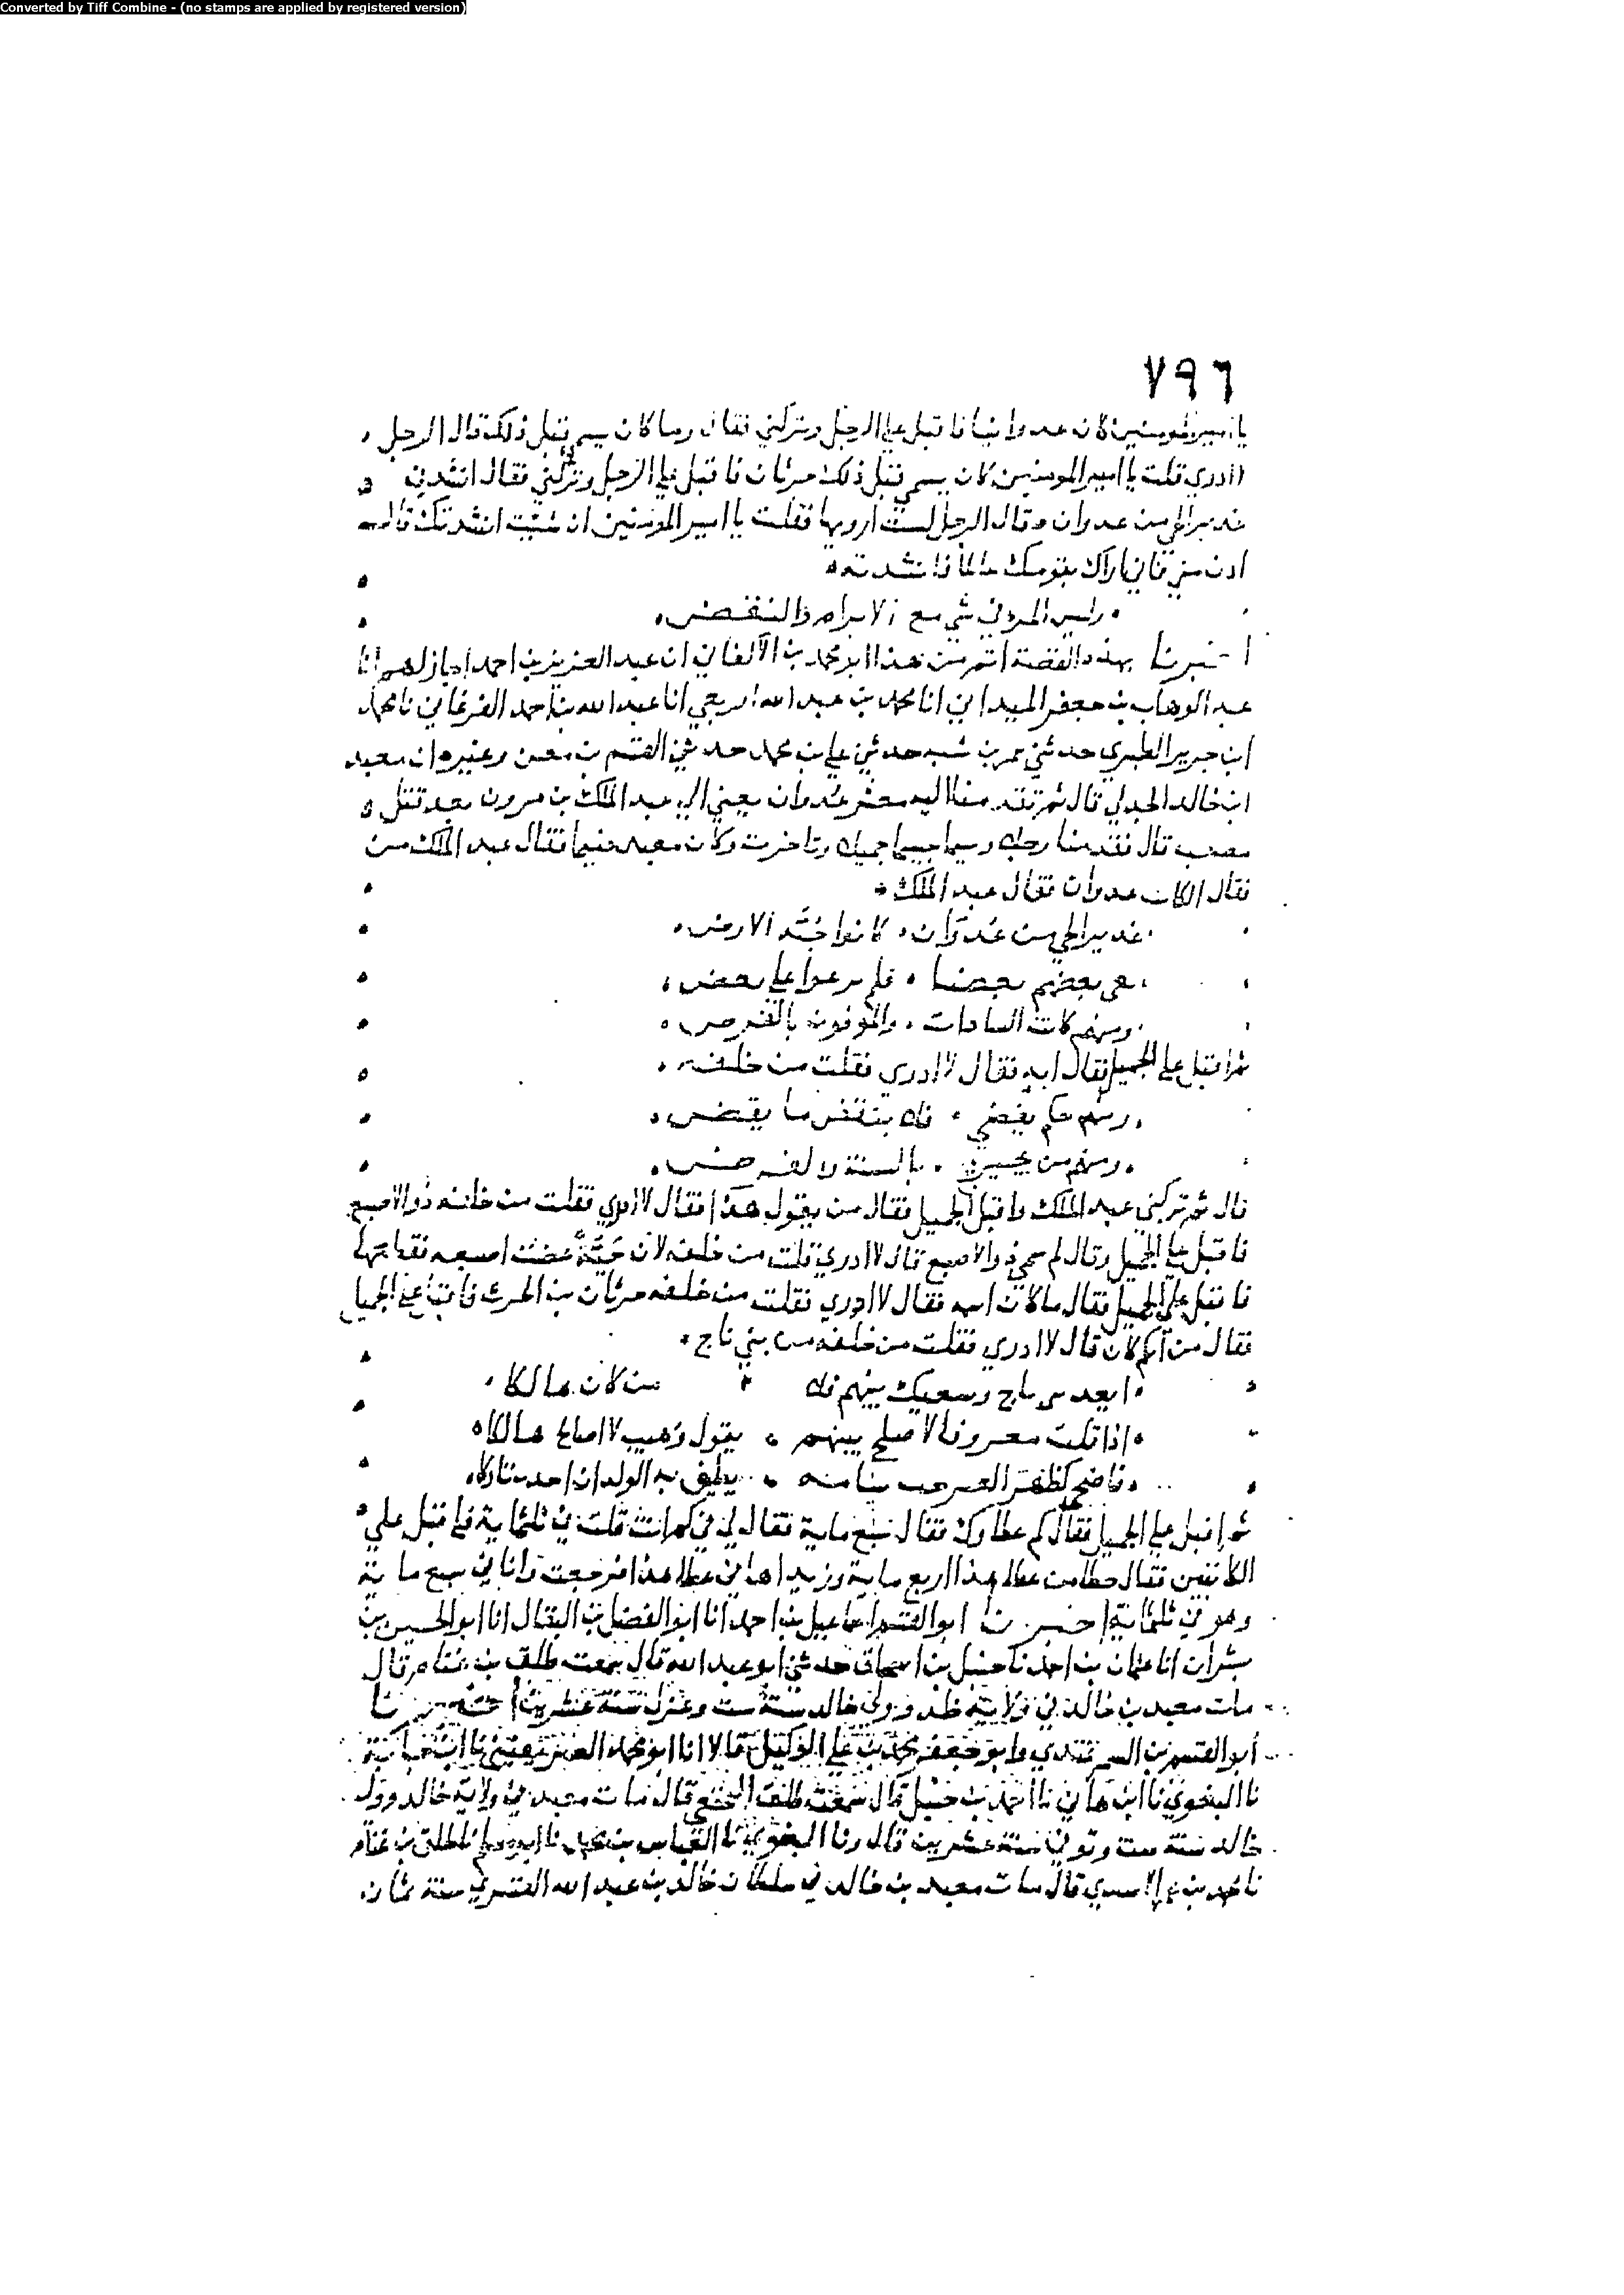 Converted by Tiff Combine - (no stamps are applied by registered version)
٧٩٦
يا امير المومنين كان عدوانيا فاقبل علي الرجل وتركني فقال وما كان يسمي قبل ذلك قال الرجل
لا ادري قلت يا امير المومنين كان يسمي قبل ذلك حرثان فاقبل علي الرجل وتركني فقال انشدني
عذير الحي من عدوان وقال الرجل لست ارويها فقلت يا امير المومنين ان شئت انشدتك قال
ادن مني فاني اراك بقومك عالما فانشدته
وليس المرو في شي مع الابرام والنقض
اخبرنا بهذه القصة اتم من هذا ابو محمد بن الاكفاني ان عبد العزيز بن احمد اجاز لهم انا
عبد الوهاب بن جعفر الميداني انا محمد بن عبد الله الربعي انا عبد الله بن احمد الفرغاني نا محمد
ابن جرير الطبري حدثني عمر بن شبه حدثني علي بن محمد حدثني القسم بن معن وغيره ان معبد
ابن خالد الجدلي قال ثم تقدمنا اليه معشر عدوان يعني الي عبد الملك بن مرون بعد قتل
مصعب قال فقدمنا رجلا وسيما جسيما جميلا وتاخرت وكان معبد دميما فقال عبد الملك من
فقال الكاتب عدوان فقال عبد الملك
عذير الحي من عدوان كانوا حية الارض
بغي بعضهم بعضا فلم يرعوا علي بعض
ومنهم كانت السادات والموفون بالقرض
ثم اقبل علي الجميل فقال ايه فقال لا ادري فقلت من خلفه
ومنهم حكم يقضي فلا ينقض ما يقضي
ومنهم من يجيز بالسنة والفرض
قال ثم تركني عبد الملك واقبل الجميل فقال من يقول هذا فقال لا ادري فقلت من خلفه ذو الاصبع
فاقبل علي الجميل وقال لم سمي ذو الاصبع قال لا ادري قلت من خلفه لان حية عضت اصبعه فقطعتها
فاقبل علي الجميل فقال ما كان اسمه فقال لا ادري فقلت من خلفه حرثان بن الحرث فاقبل علي الجميل
فقال من ايكم كان قال لا ادري فقلت من خلفه من بني ناج
ابعد بني ناج وسعيك بينهم فلا من كان هالكا
اذا قلت معروفا لاصلح بينهم يقول وهيب لا اصالح هالكا
فاضحي كظهر العير جب سنامه يطيف به الولدان احدب باركا
ثم اقبل علي الجميل فقال كم عطاوك فقال سبع ماية فقال لي في كم انت قلت في ثلثماية فاقبل علي
الكاتبين فقال حطا من عطا هذا اربع ماية وزيداها في عطا هذا فرجعت وانا في سبع ماية
وهو في ثلثماية اخبرنا ابو القسم اسماعيل بن احمد انا ابو الفضل بن البقال انا ابو الحسين بن
بشران انا عثمان بن احمد نا حنبل بن اسحاق حدثني ابو عبد الله قال سمعت طلق بن غنام قال
مات معبد بن خالد في ولاية خالد وولي خالد سنة ست وعزل سنة عشرين اخبرنا
ابو القسم بن السمرقندي وابو جعفر محمد بن علي الوكيل قالا انا ابو محمد الصريفيني نا ابن حبابة
نا البغوي نا ابن هاني نا احمد بن حنبل قال سمعت طلق النخعي قال مات معبد في ولاية خالد وولي
خالد سنة ست وتوفي سنة عشرين قال ونا البغوي نا العباس بن محمد نا نا طلق بن غنام
نا محمد بن الاسدي قال مات معبد بن خالد في سلطان خالد بن عبد الله القسري سنة ثمان